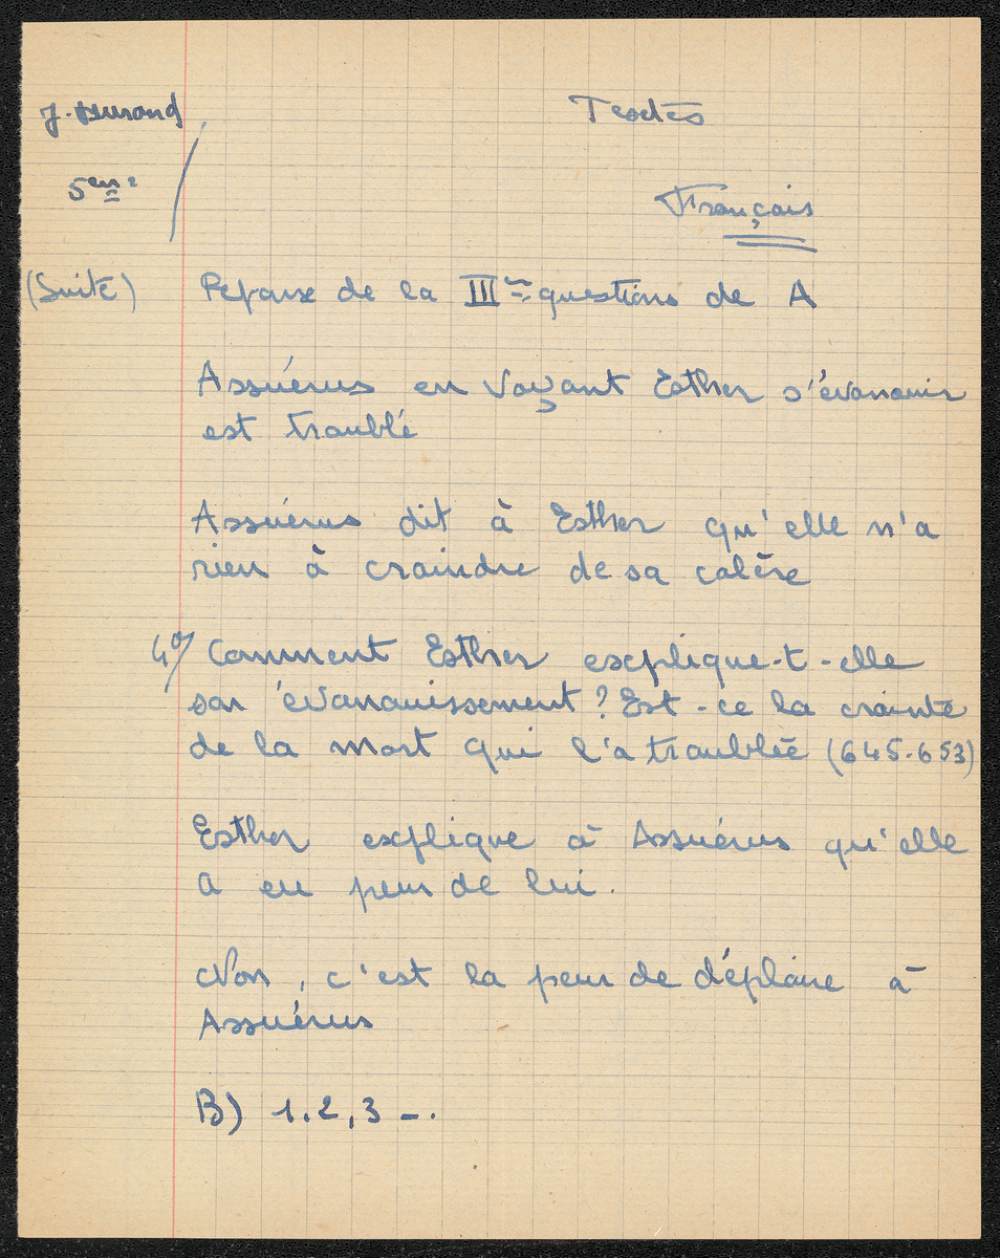 J. Durand
Textes
5em
Français
(Suite) Reponse de la III questions de A
Assuérus en voyant Esther s'évanouir
est troublé
Assuérus dit à Esther qu'elle n'a
rien à craindre de sa colère
4°/ Comment Esther explique-t-elle
son évanouissement ? Est-ce la crainte
de la mort qui l'a troublée (645-653)
Esther explique à Assuérus qu'elle
a eu peur de lui.
Non, c'est la peur de déplaire à
Assuérus
B) 1.2,3 -.